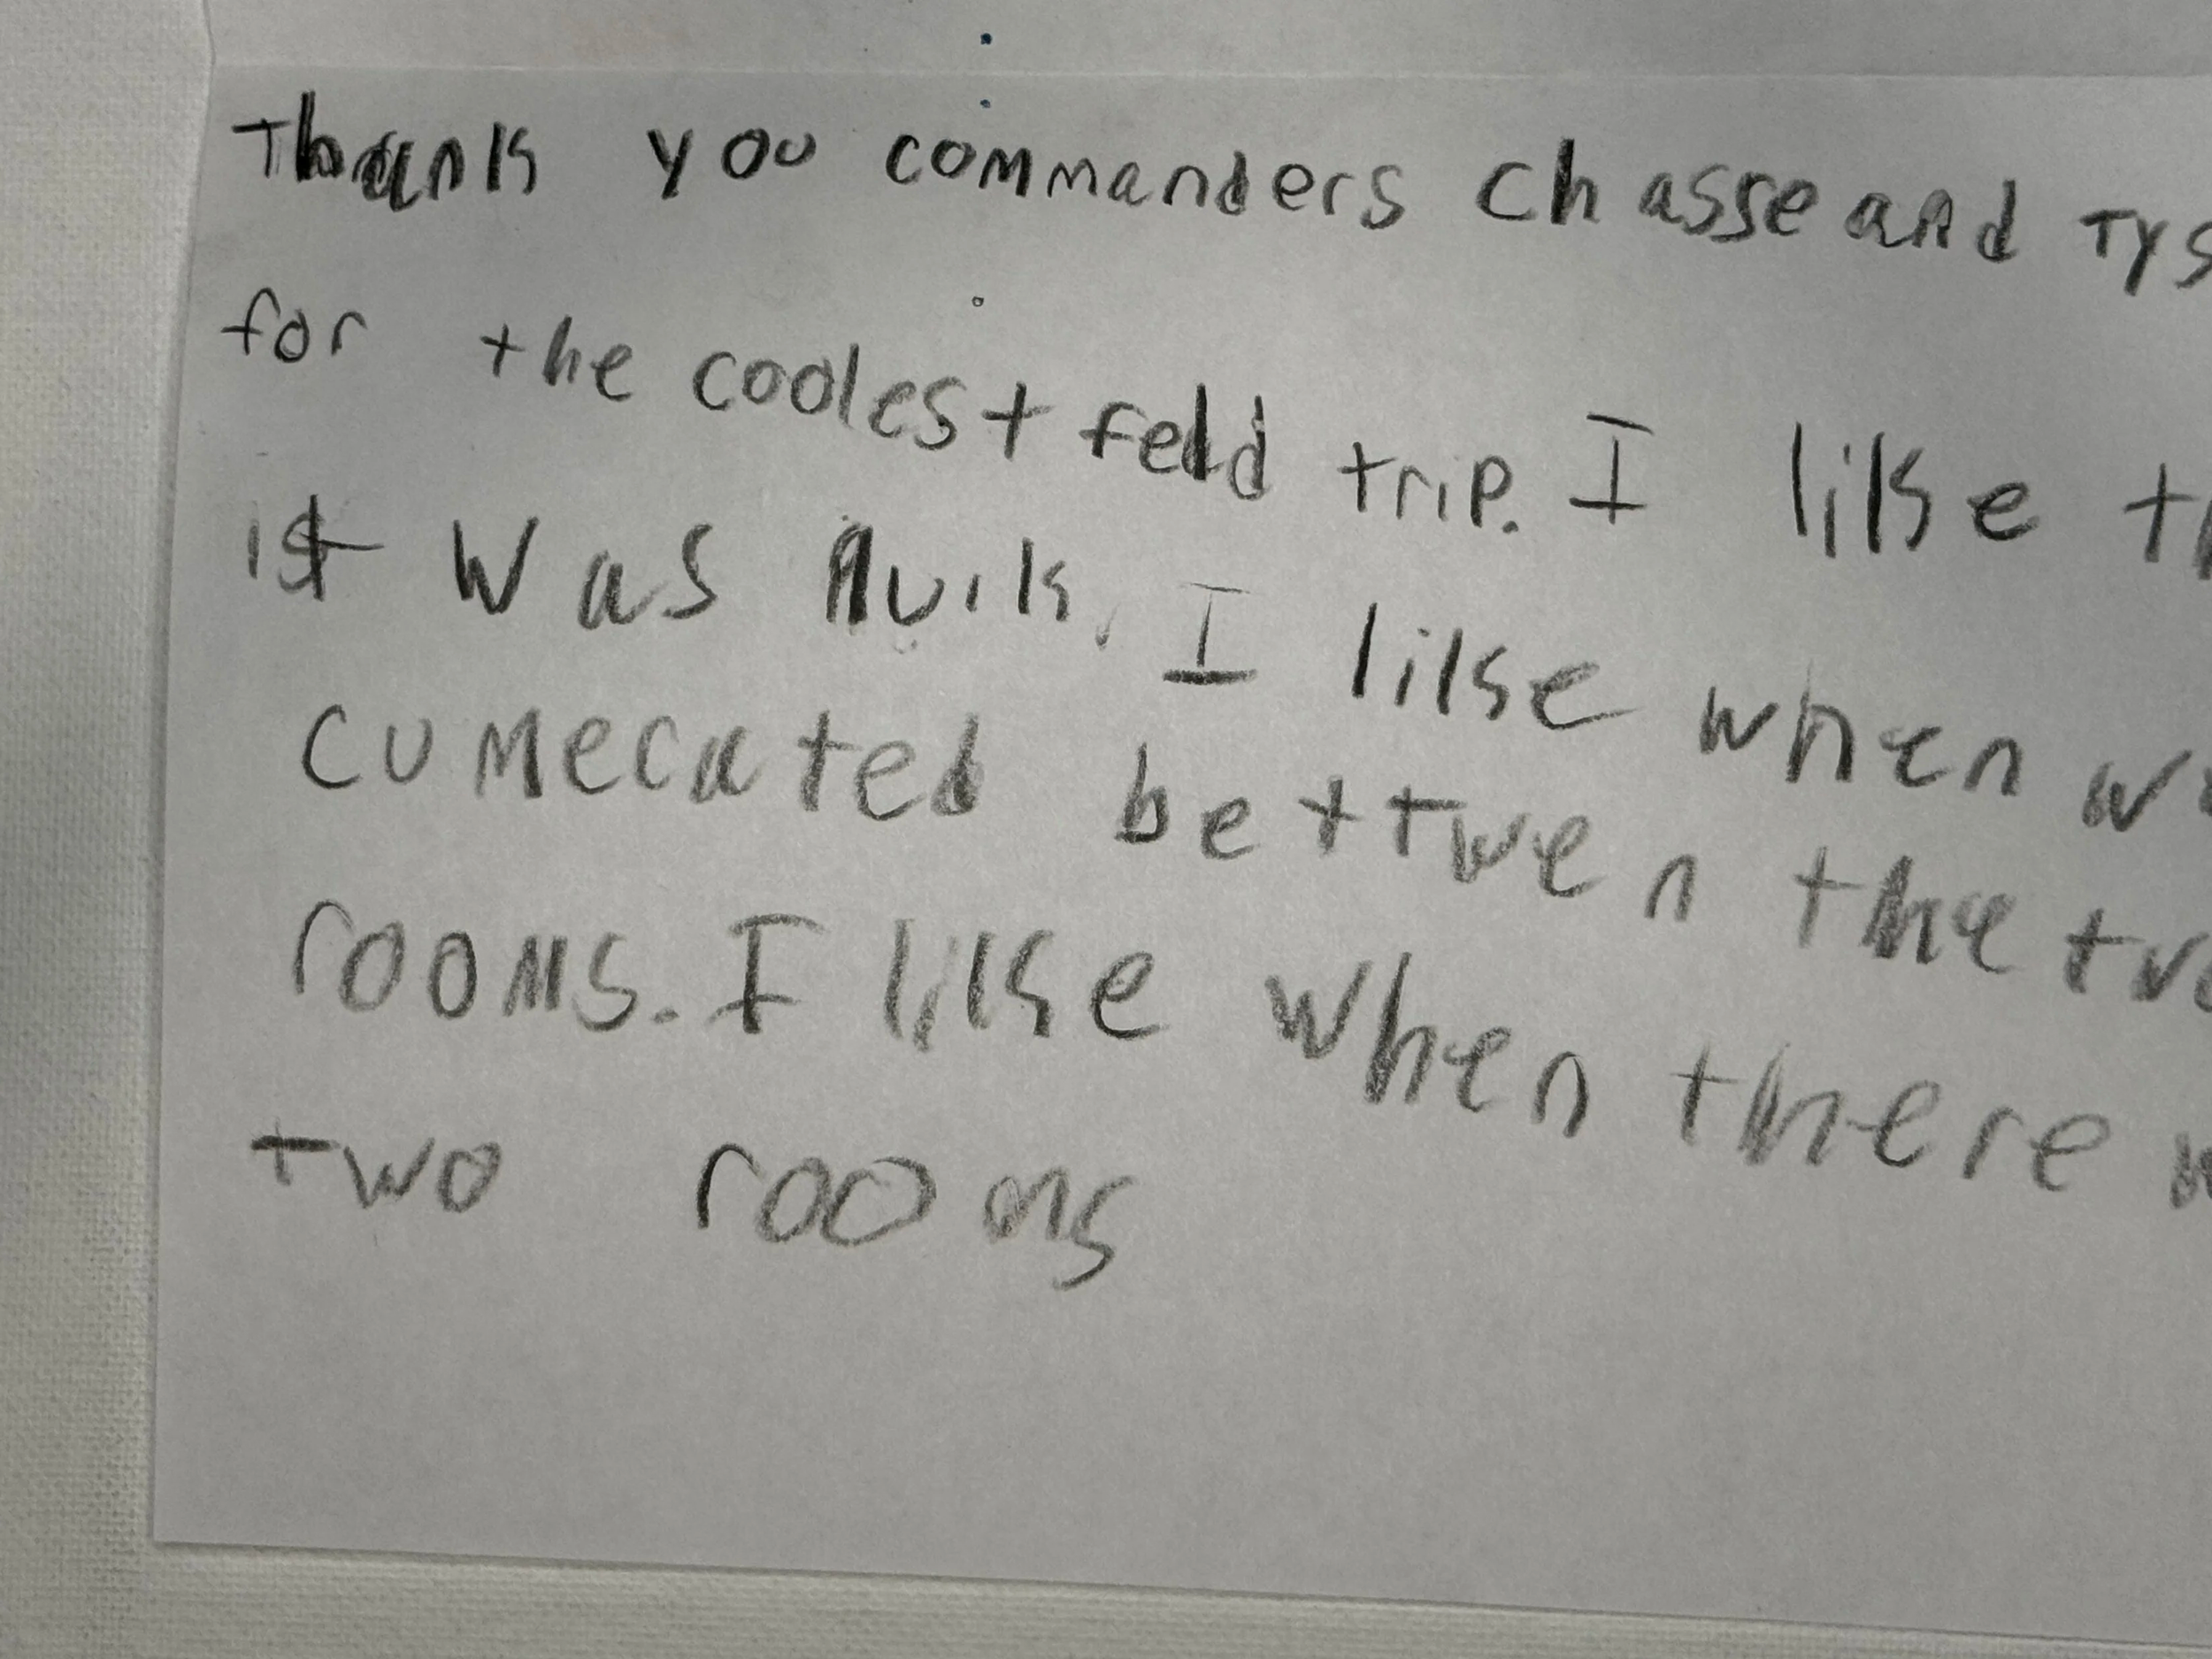 Thank you commanders Chasse and Tys
for the coolest feld trip. I like th
it was quik. I like when we
cumecated bettwen the two
rooms. I like when there w
two rooms